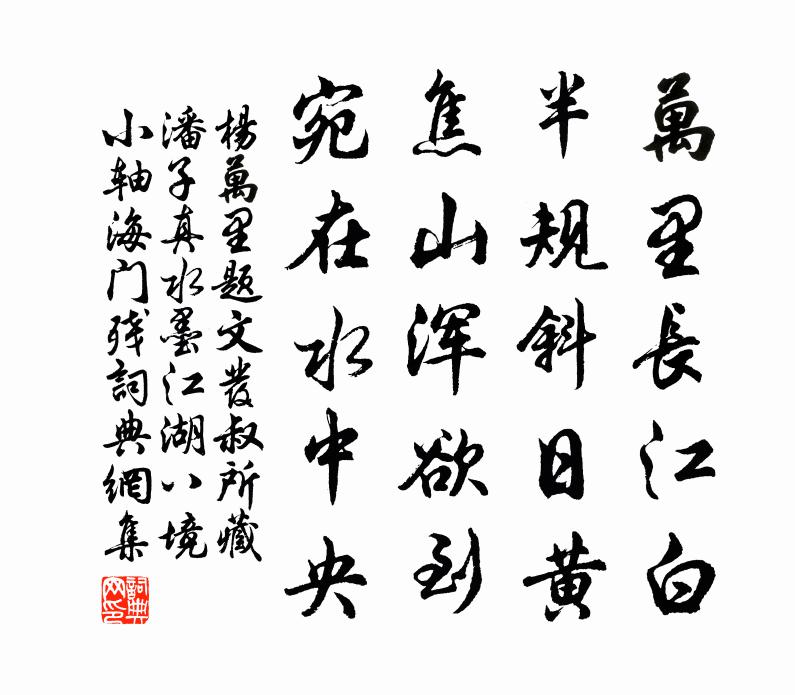 萬里長江白
半规斜日黄
焦山浑欲到
宛在水中央
楊萬里题文發叔所藏
潘子真水墨江湖八境
小轴海门残詞典網集
詞典網印